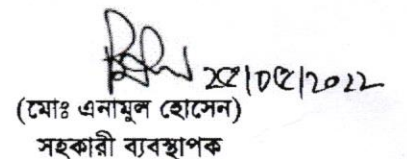 ২৫/০৫/২০২২
(মোঃ এনামুল হোসেন)
সহকারী ব্যবস্থাপক